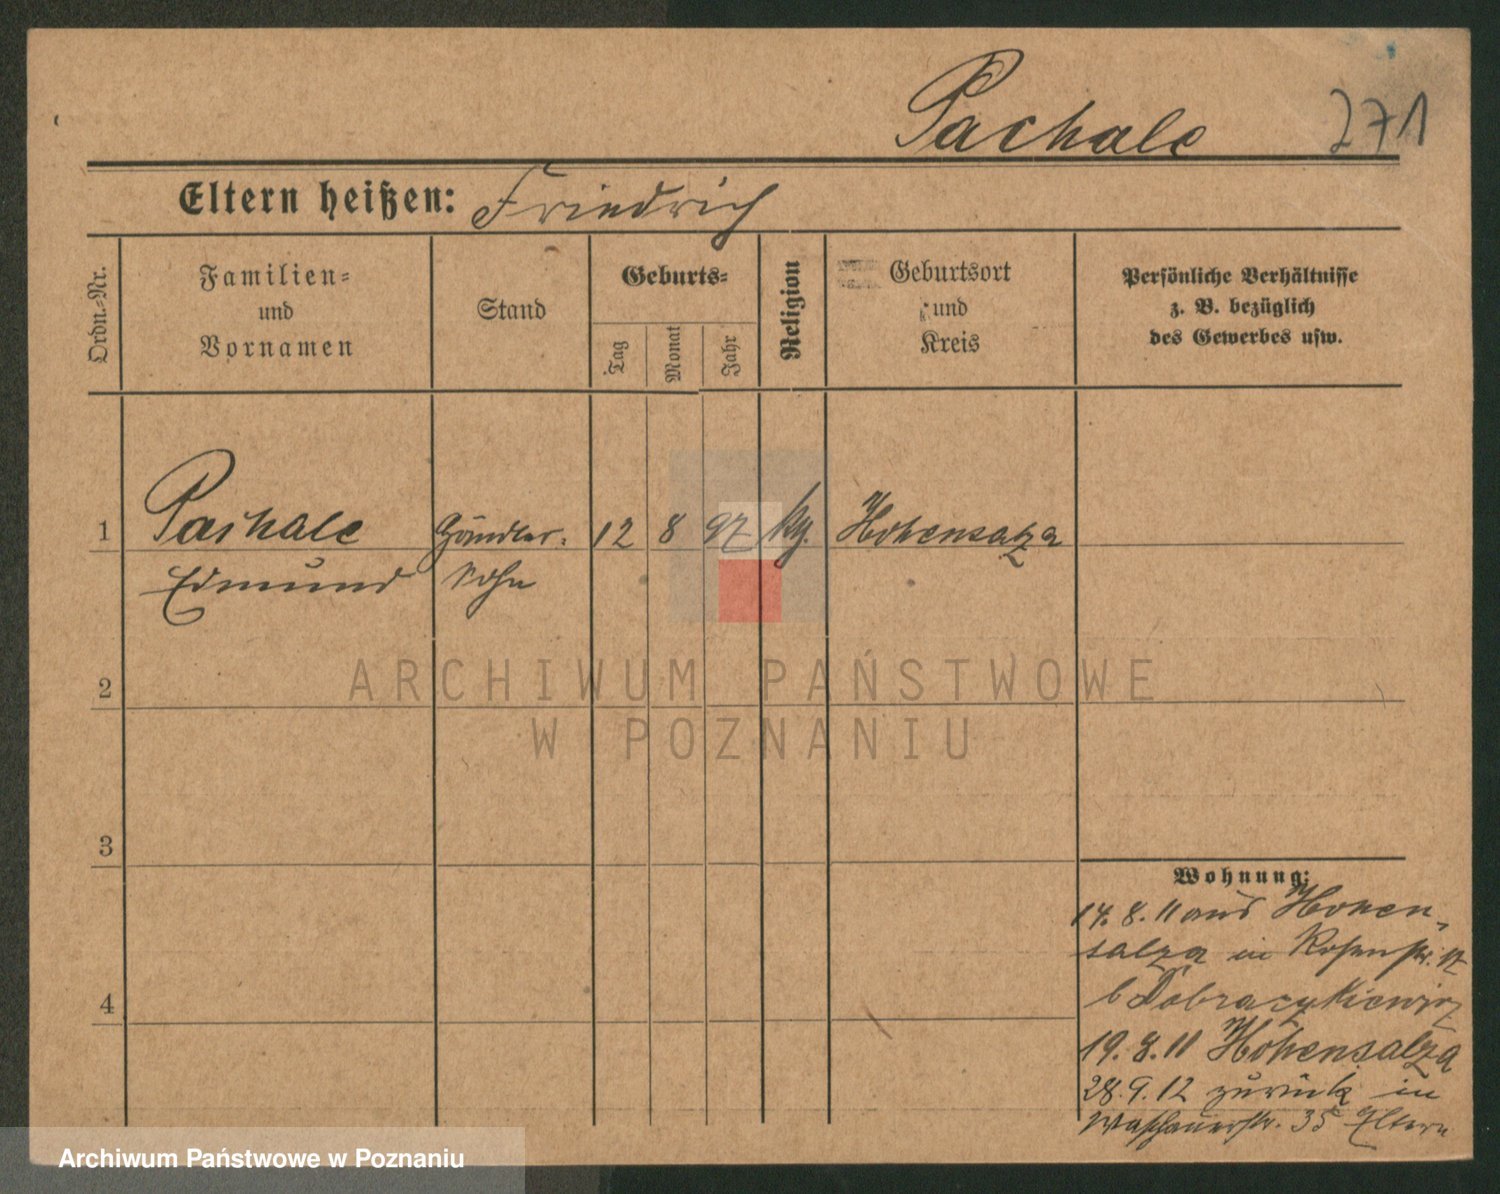 Pachale 271
Eltern heißen: Friedrich
Ordn.-Nr.
Familien-
und
Vornamen
Stand
Geburts-
Tag
Monat
Jahr
Religion
Geburtsort
und
Kreis
Persönliche Verhältnisse
z. B. bezüglich
des Gewerbes usw.
1 Pachale Händler- 12 8 97 Hohensalza
Edmund sohn
2
3
4
Wohnung:
14.8.11 aus Hohen-
salza in Rosenstr. 17
b Dobraczykiewicz
19.8.11 Hohensalza
28.9.12 zurück in
35 Eltern
ARCHIWUM PAŃSTWOWE
W POZNANIU
Archiwum Państwowe w Poznaniu